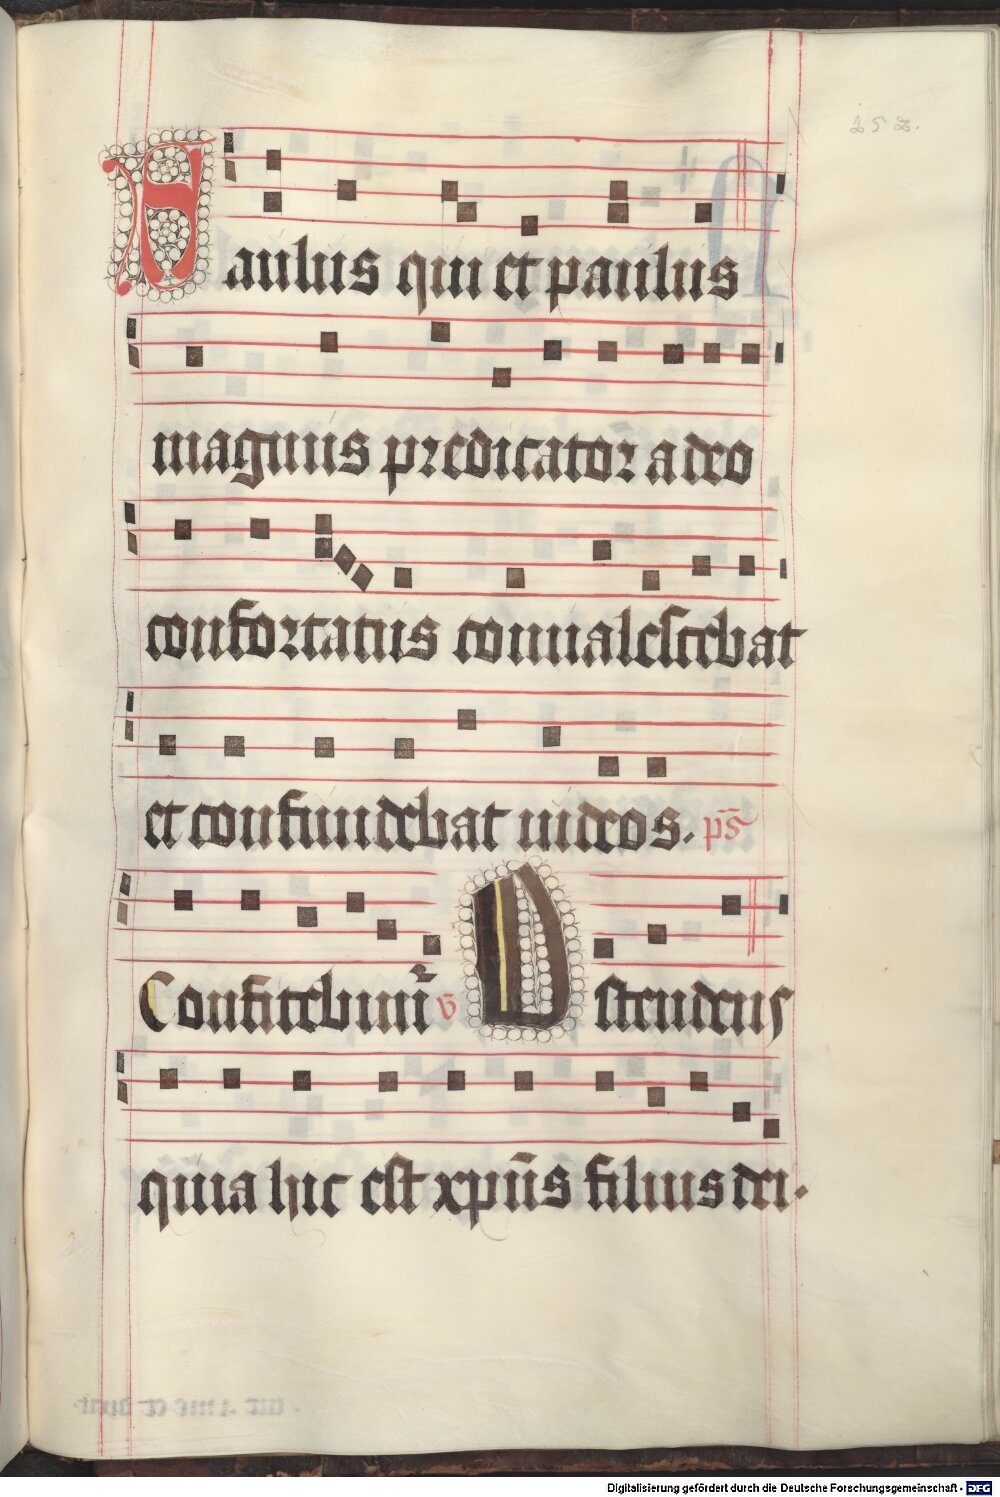 252.
Saulus qui et paulus
magnus predicator a deo
confortatus conualescebat
et confundebat iudeos. ps̄
Confitebimͥ v̄ Ostendens
quia hic est xpūs filius dei.
Digitalisierung gefördert durch die Deutsche Forschungsgemeinschaft - DFG